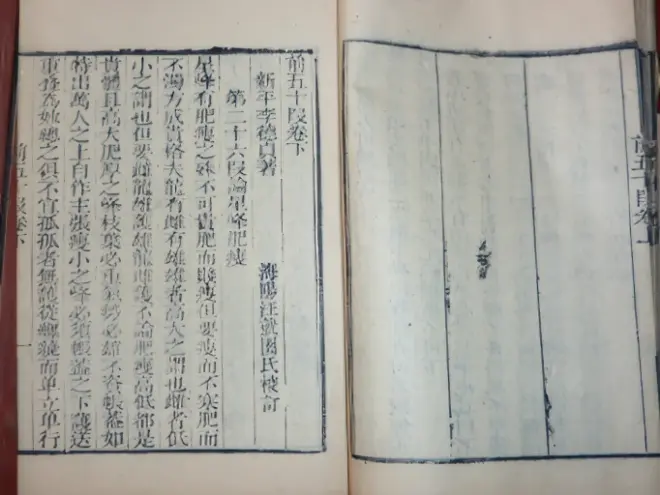 前五十段卷
前五十段卷下
新平李德貞著 海陽汪園氏校訂
第二十六段論星峰肥瘦
星峰有肥瘦之殊不可貴肥而賤瘦但要瘦而不寒肥而
不濁方成貴格夫龍有雌有雄雄者高大之謂也雌者低
小之謂也但要雌龍雄護雄龍雌護不論肥瘦高低都是
貴體且高大肥厚之峰枝葉必重氣勢必雄不容帳蓋如
特出萬人之上自作主張瘦小之峰必須帳蓋之下護送
重疊為妙總之俱不宜孤孤者無護從纏繞而单立单行
前五十段卷下